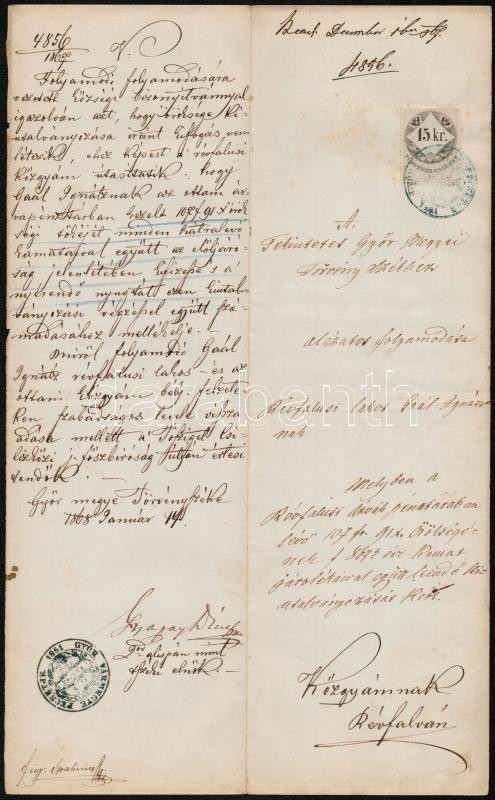 4856
1867
V:
Folyamodó folyamodására
vezetett községi bizonyitvánnyal
igazolván azt, hogy öröksége ki-
utalványozása iránt kifogás nem
létezik, ehez képest a révfalusi
közgyám utasittatik hogy
Gaál Ignátznak az ottani ár-
vapénztárban kezelt 107 f 91 x örök-
ségi tőkéjét minden hátralevő
kamataival együtt az elöljáró-
ság jelentétében kifizesse s a
nyerendő nyugtát ezen kiutal-
ványozási végzéssel együtt szá-
madásához mellékelje.
Miről folyamodó Gaál
Ignátz révfalusi lakos és az
ottani közgyám bély. felzete-
ken szabadságos levele vissza
adása mellett a Tószigeti Csi-
lizközi j. főszbiróság utján értesi
tendők.
Győr megye Törvényszéke
1868 Január 14.
alispán mint
elnök.
GYŐR VÁRMEGYE PECSÉTJE 1861
Decembor
4856.
15 kr.
A
Tekintetes Győr Megyei
Törvény Székhez
alázatos folyamodása
Révfalusi lakos Gaál Ignácz
nak
Melyben a
Révfalusi árvák pénztárában
lévő 107 fr. 91 x. Örökségé-
nek s 867 évi Kamat
járulékaival együtt leendő Ki-
utalványozását kéri.
Közgyámnak
Révfalván
darabanth